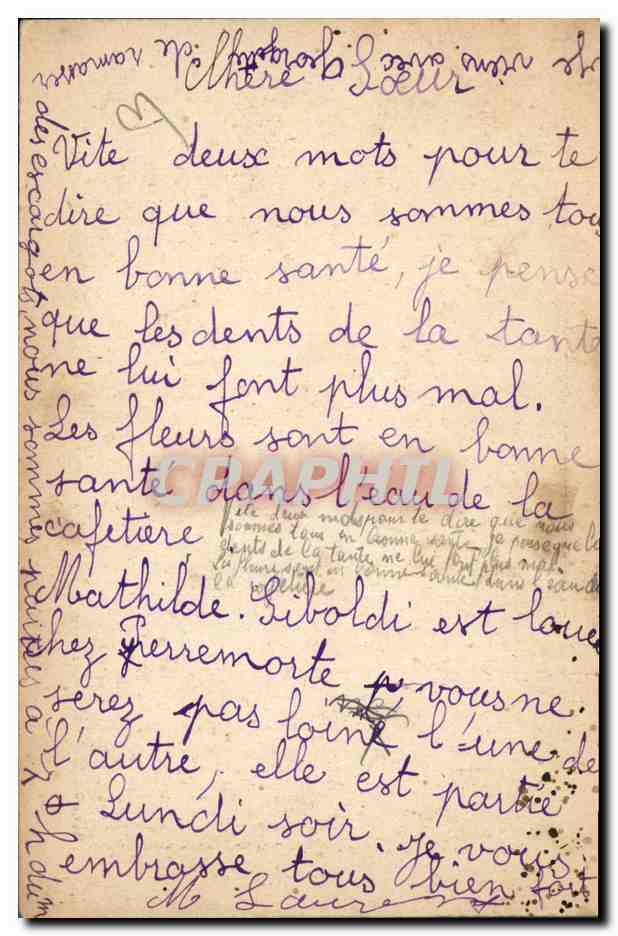 Chère Sœur
Vite deux mots pour te
dire que nous sommes tou
en bonne santé, je pense
que les dents de la tante
ne lui font plus mal.
Les fleurs sont en bonne
santé dans l'eau de la
cafetière
Vite deux mots pour te dire que nous
sommes tous en bonne santé je pense que le
dents de la tante ne lui font plus mal
en bonne santé dans l'eau de
la
Mathilde. Giboldi est loue
chez Pierremorte vous ne
serez pas loin l'une de
l'autre, elle est partie
Lundi soir. Je vous
embrasse tous bien fort
M Laure
Je viens avec Georges de ramasser
des escargots nous sommes partis à 7 h du m
CPAPHIL